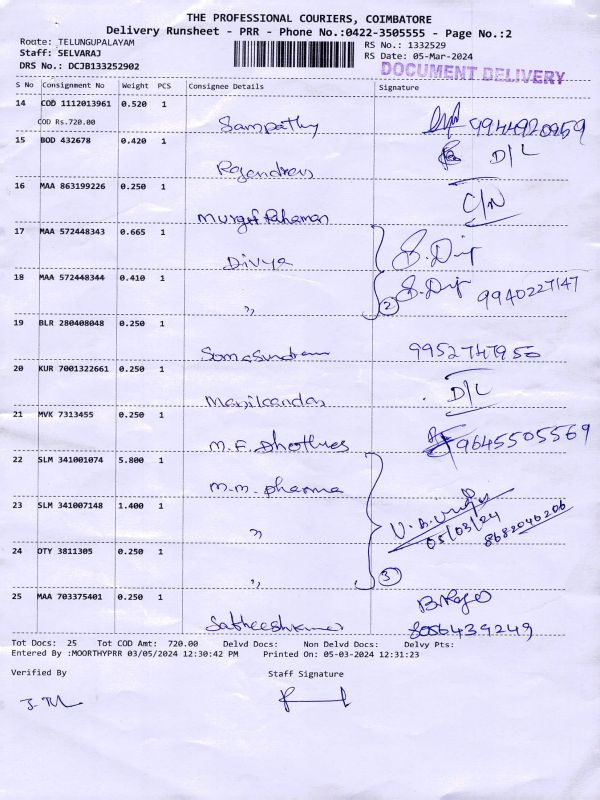 THE PROFESSIONAL COURIERS, COIMBATORE
Delivery Runsheet - PRR - Phone No.:0422-3505555 - Page No.:2
Route: TELUNGUPALAYAM
Staff: SELVARAJ
DRS No.: DCJB133252902
RS No.: 1332529
RS Date: 05-Mar-2024
DOCUMENT DELIVERY
S No Consignment No Weight PCS Consignee Details Signature
14 COD 1112013961 0.520 1
COD Rs.720.00 Sampathy 9944920959
15 BOD 432678 0.420 1 D/L
Rajendran
16 MAA 863199226 0.250 1 C/N
Rahaman
17 MAA 572448343 0.665 1 S. Div
Divya
18 MAA 572448344 0.410 1 S. Div 9940227147
" 2
19 BLR 280408048 0.250 1
Somasundram 9952747950
20 KUR 7001322661 0.250 1 D/L
Manikandan
21 MVK 7313455 0.250 1 9645505569
M.F. Dhothies
22 SLM 341001074 5.800 1
M.M. Pharma
23 SLM 341007148 1.400 1
" 05/03/24 8682040206
24 OTY 3811305 0.250 1
" 3
25 MAA 703375401 0.250 1
Satheeshkumar 8056439249
Tot Docs: 25 Tot COD Amt: 720.00 Delvd Docs: Non Delvd Docs: Delvy Pts:
Entered By :MOORTHYPRR 03/05/2024 12:30:42 PM Printed On: 05-03-2024 12:31:23
Verified By Staff Signature